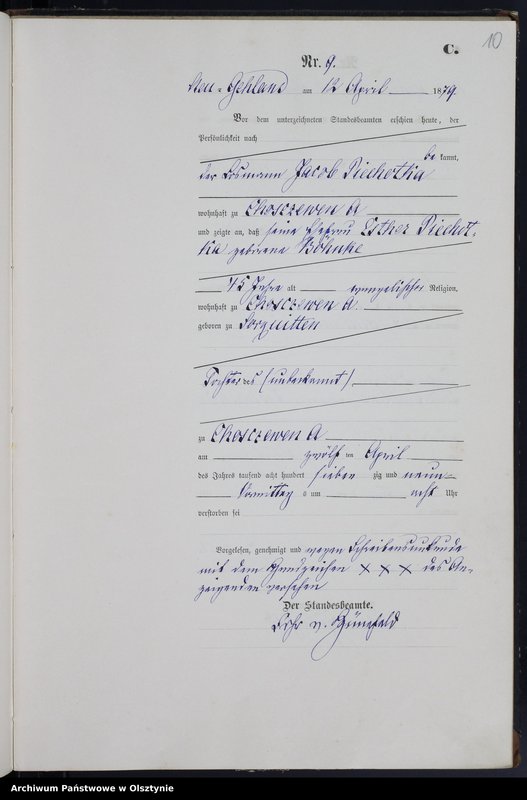 C.
10
Nr. 9.
Neu-Gehland am 12 April 1879
Vor dem unterzeichneten Standesbeamten erschien heute, der
Persönlichkeit nach
be kannt,
der Losmann Jacob Piechotka
wohnhaft zu Choszczewen A
und zeigte an, daß seine Ehefrau Esther Piechot-
ka geborene Böhnke
45 Jahre alt evangelischer Religion,
wohnhaft zu Choszczewen A.
geboren zu Sorquitten
Tochter des (unbekannt)
zu Choszczewen A
am zwölf ten April
des Jahres tausend acht hundert sieben zig und neun
Vormittag s um acht Uhr
verstorben sei
Vorgelesen, genehmigt und wegen Schreibensunkunde
mit dem Handzeichen XXX des An-
zeigenden versehen
Der Standesbeamte.
v.
Archiwum Państwowe w Olsztynie